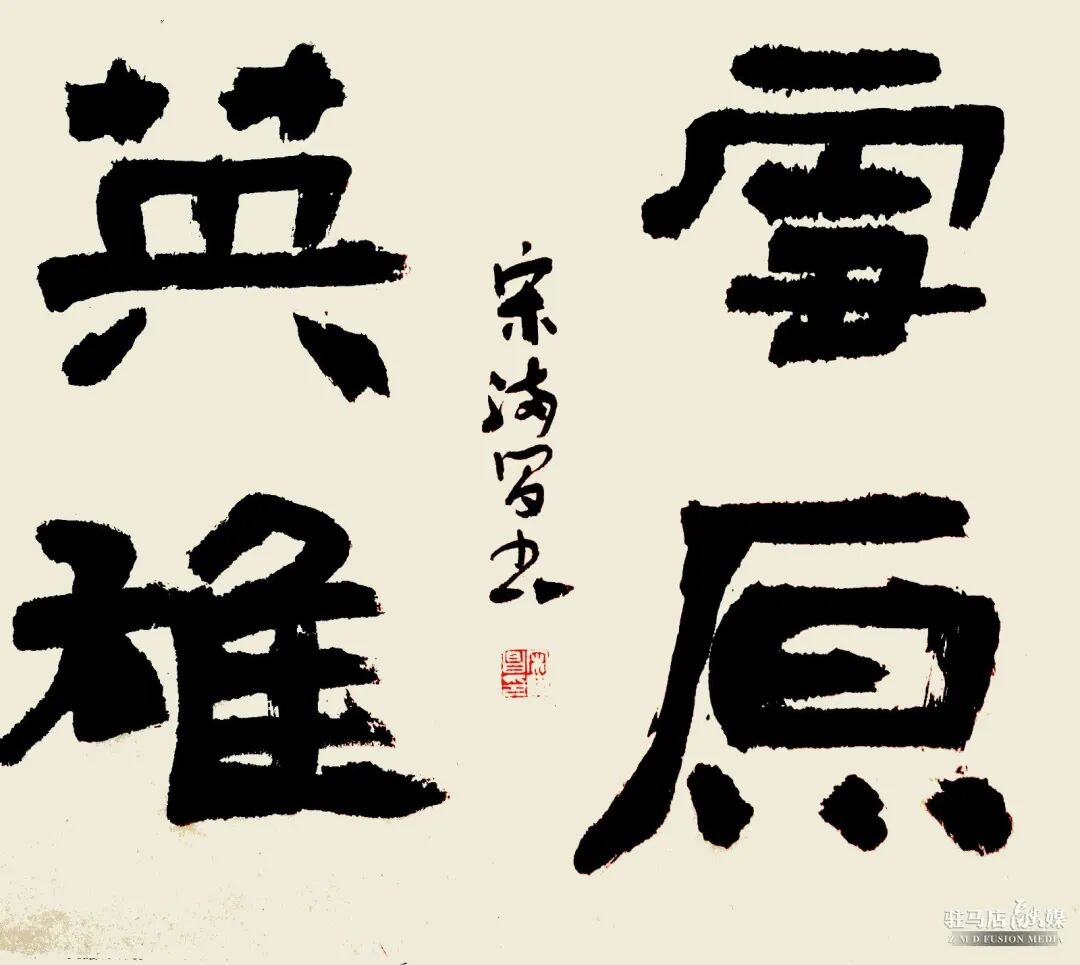 雪原
英雄
宋海军书
驻马店融媒
Z M D FUSION MEDIA